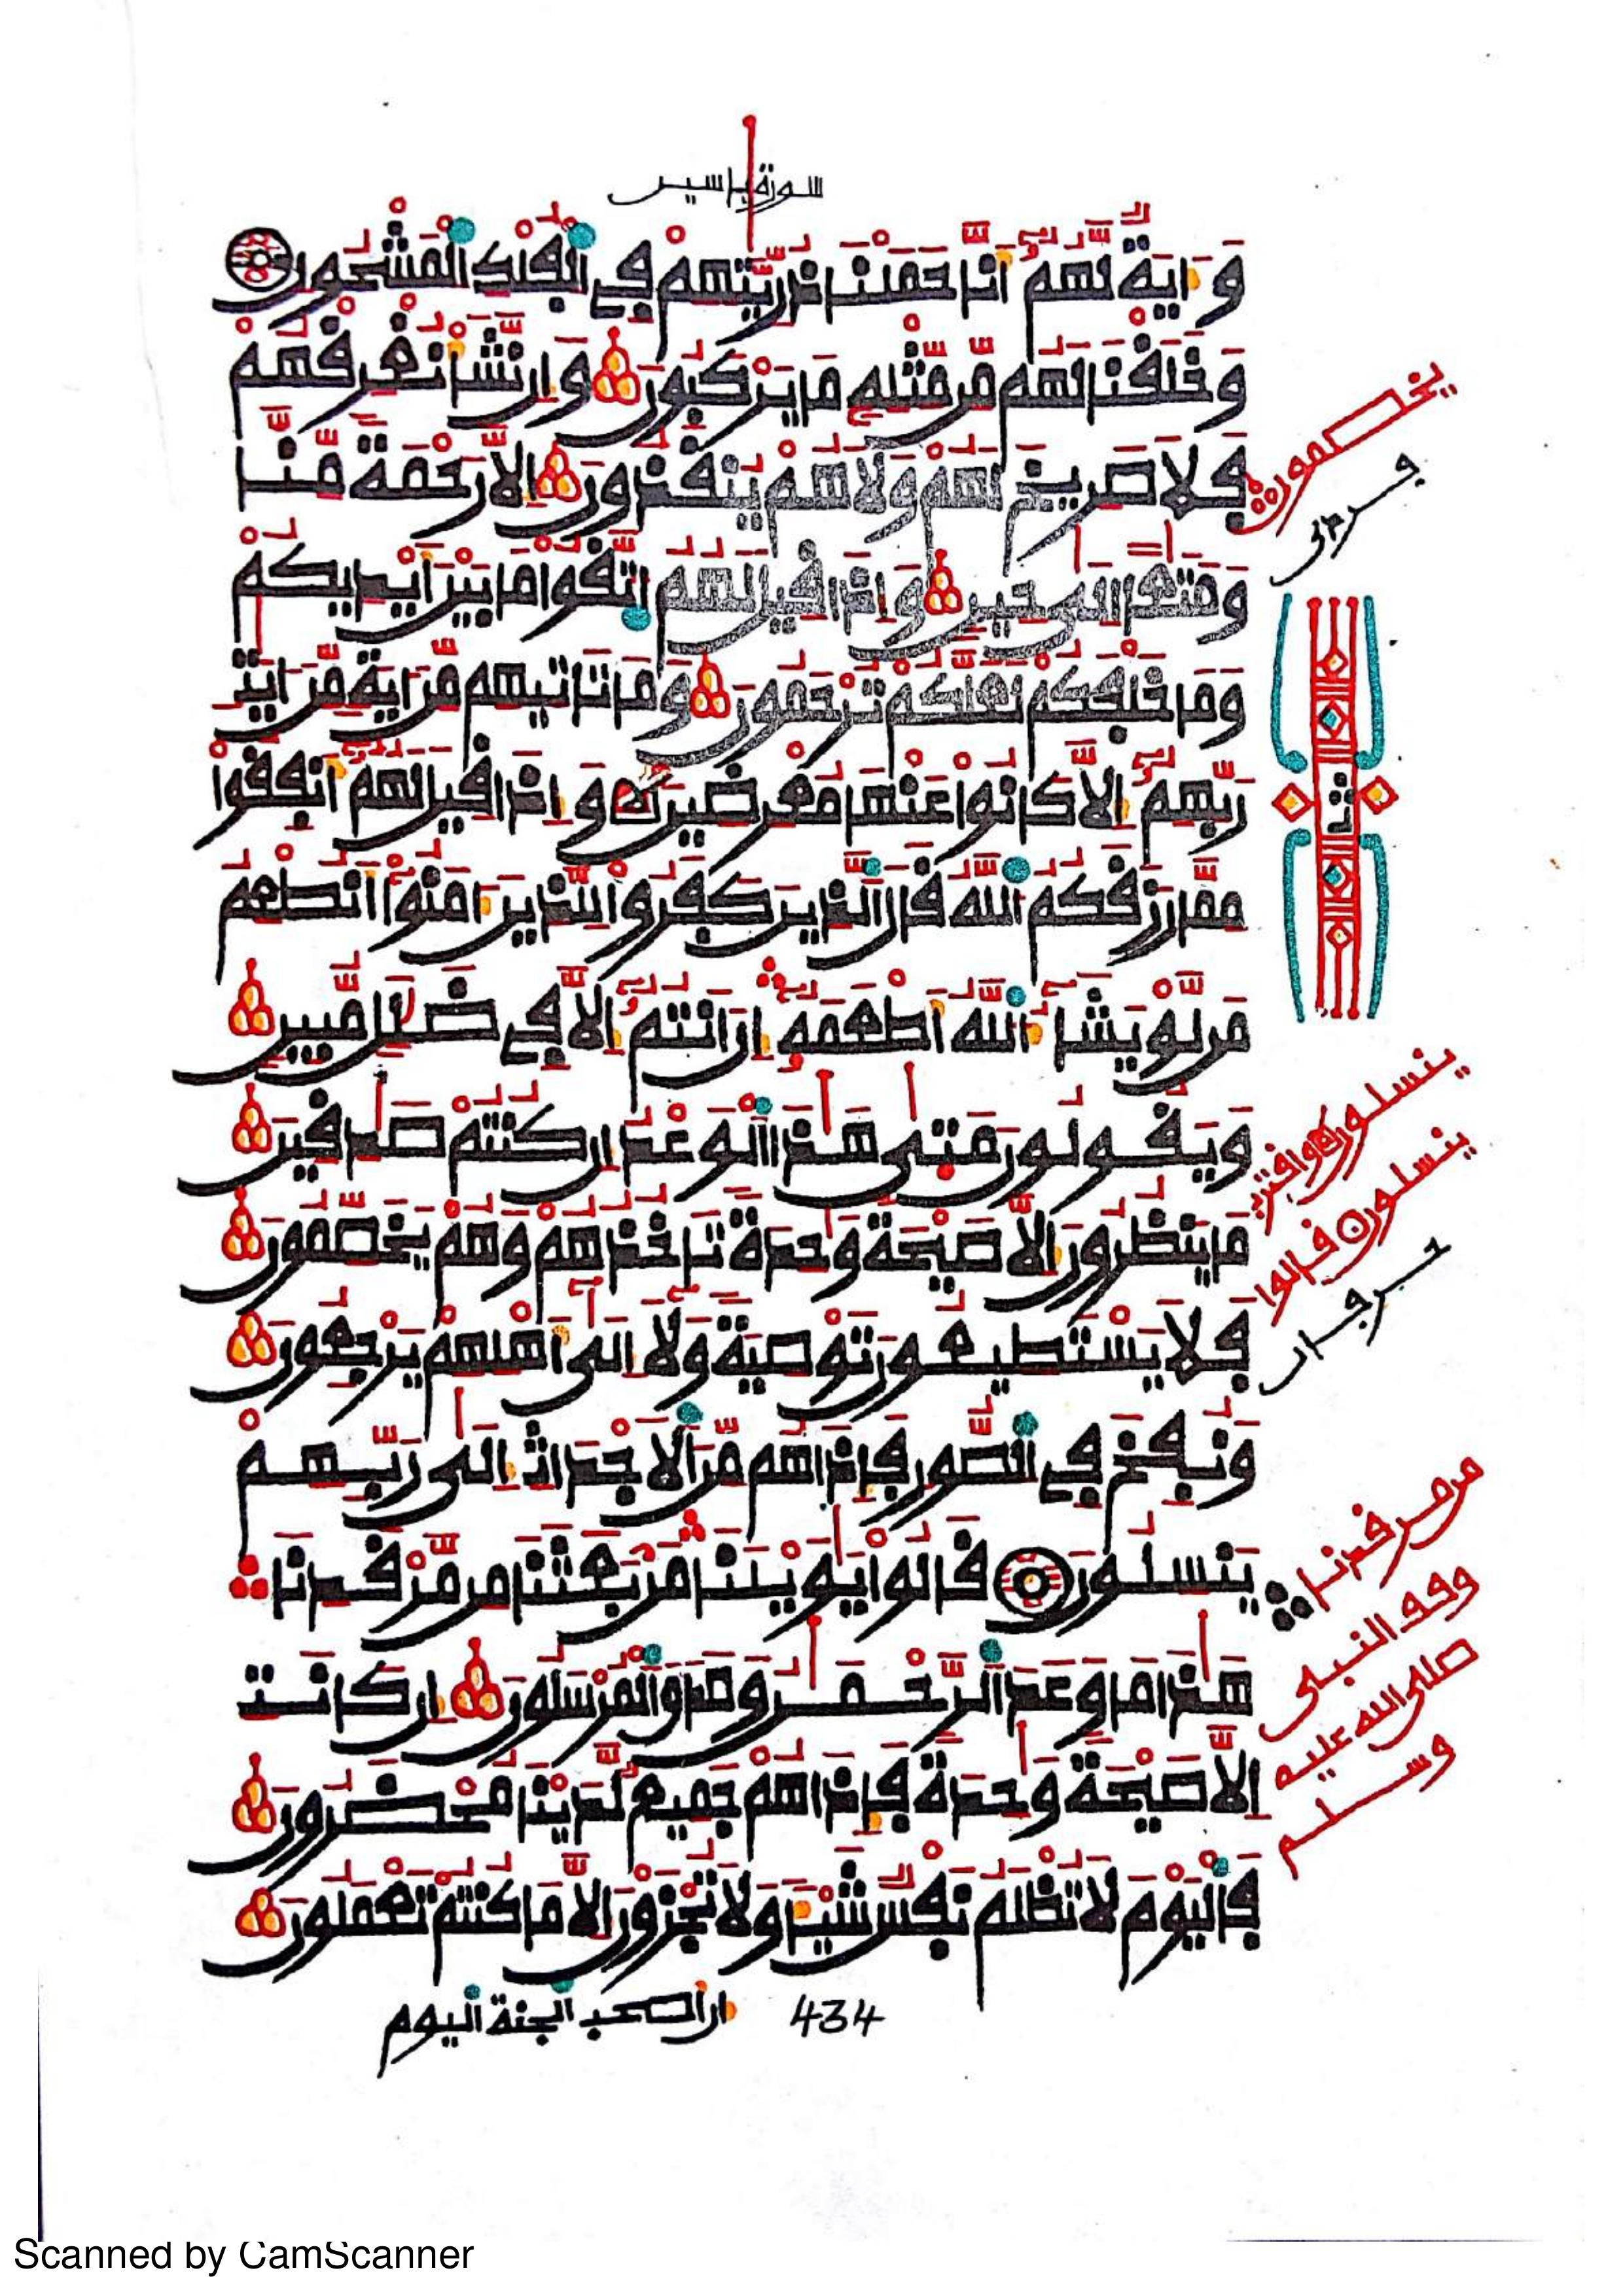 سورة ياسين
وَءَايَةٌ لَّهُمُۥٓ أَنَّا حَمَلْنَا ذُرِّيَّتَهُمْ فِي الْفُلْكِ الْمَشْحُونِ
وَخَلَقْنَا لَهُم مِّن مِّثْلِهِۦ مَا يَرْكَبُونَ وَإِن نَّشَأْ نُغْرِقْهُمْ
فَلَا صَرِيخَ لَهُمْ وَلَا هُمْ يُنقَذُونَ إِلَّا رَحْمَةً مِّنَّا
وَمَتَٰعًا إِلَىٰ حِينٍ وَإِذَا قِيلَ لَهُمُ اتَّقُوا مَا بَيْنَ أَيْدِيكُمْ
وَمَا خَلْفَكُمْ لَعَلَّكُمْ تُرْحَمُونَ وَمَا تَاتِيهِم مِّنَ ايَةٍ مِّنَ ايَٰتِ
رَبِّهِمُۥٓ إِلَّا كَانُوا عَنْهَا مُعْرِضِينَ وَإِذَا قِيلَ لَهُمُۥٓ أَنفِقُوا
مِمَّا رَزَقَكُمُ اللَّهُ قَالَ الَّذِينَ كَفَرُوا لِلَّذِينَ ءَامَنُوٓا أَنُطْعِمُ
مَن لَّوْ يَشَآءُ اللَّهُ أَطْعَمَهُۥٓ إِنَ انتُمُۥٓ إِلَّا فِي ضَلَٰلٍ مُّبِينٍ
وَيَقُولُونَ مَتَىٰ هَٰذَا الْوَعْدُ إِن كُنتُمْ صَٰدِقِينَ
مَا يَنظُرُونَ إِلَّا صَيْحَةً وَٰحِدَةً تَاخُذُهُمْ وَهُمْ يَخَصِّمُونَ
فَلَا يَسْتَطِيعُونَ تَوْصِيَةً وَلَآ إِلَىٰٓ أَهْلِهِمْ يَرْجِعُونَ
وَنُفِخَ فِي الصُّورِ فَإِذَا هُم مِّنَ الْأَجْدَاثِ إِلَىٰ رَبِّهِمْ
يَنسِلُونَ قَالُوا يَٰوَيْلَنَا مَنۢ بَعَثَنَا مِن مَّرْقَدِنَا
هَٰذَا مَا وَعَدَ الرَّحْمَٰنُ وَصَدَقَ الْمُرْسَلُونَ إِن كَانَتِ
إِلَّا صَيْحَةً وَٰحِدَةً فَإِذَا هُمْ جَمِيعٌ لَّدَيْنَا مُحْضَرُونَ
فَالْيَوْمَ لَا تُظْلَمُ نَفْسٌ شَيْـًٔا وَلَا تُجْزَوْنَ إِلَّا مَا كُنتُمْ تَعْمَلُونَ
434 إن أصحب الجنة اليوم
يخصمون
ثمن
ينسلون
ينسلون قالوا
من مرقدنا
وقف النبي
صلى الله عليه
وسلم
Scanned by CamScanner